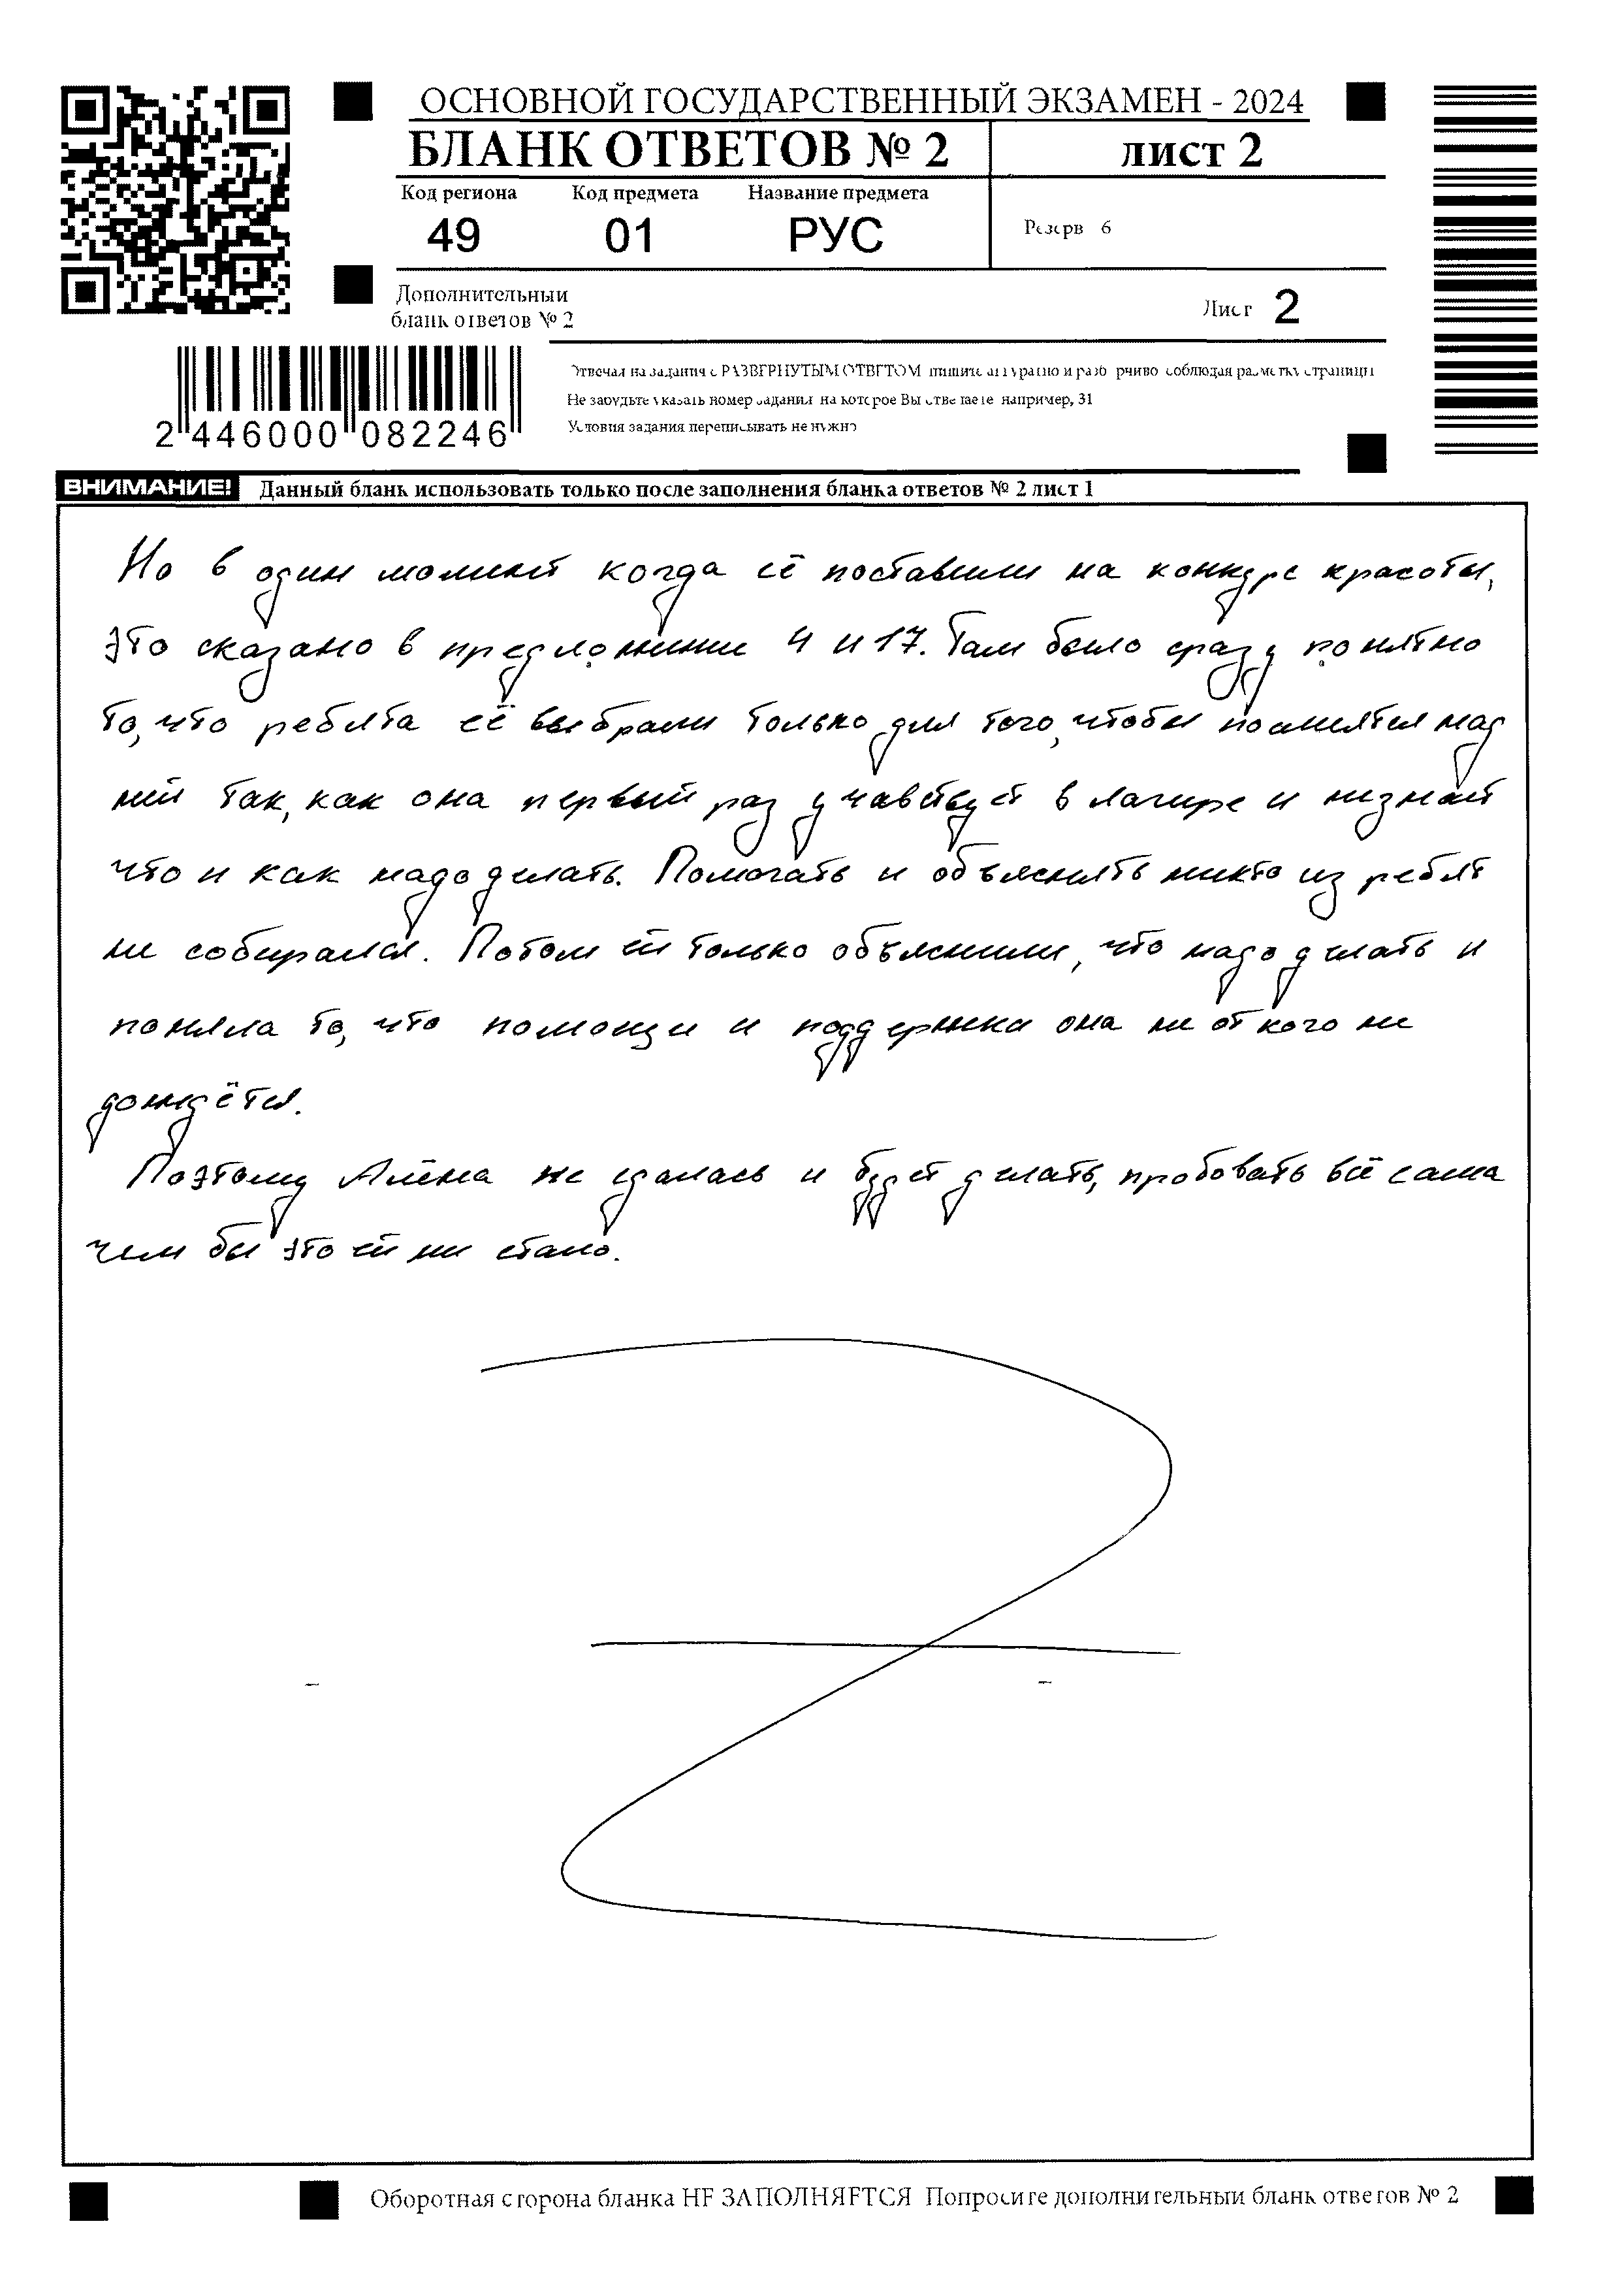 ОСНОВНОЙ ГОСУДАРСТВЕННЫЙ ЭКЗАМЕН - 2024
БЛАНК ОТВЕТОВ № 2
ЛИСТ 2
Код региона Код предмета Название предмета
49 01 РУС
Резерв 6
Дополнительный
бланк ответов № 2
Лист 2
Отвечая на задания с РАЗВЕРНУТЫМ ОТВЕТОМ пишите аккуратно и разборчиво соблюдая разметку страницы
Не забудьте указать номер задания на которое Вы отвечаете например, 31
Условия задания переписывать не нужно
2 446000 082246
ВНИМАНИЕ! Данный бланк использовать только после заполнения бланка ответов № 2 лист 1
Но в один момент когда её поставили на конкурс красоты,
это сказано в предложении 4 и 17. Там было сразу понятно
то, что ребята её выбрали только для того, чтобы посмеятся над
ней так, как она первый раз учавствует в лагире и незнает
что и как надо делать. Помогать и объяснять никто из ребят
не собирался. Потом ей только объяснили, что надо делать и
поняла то, что помощи и поддержки она не от кого не
дождётся.
Поэтому Алёна не сдалась и будет делать, пробовать всё сама
чем бы это ей ни стало.
Оборотная сторона бланка НЕ ЗАПОЛНЯЕТСЯ Попросите дополнительный бланк ответов № 2